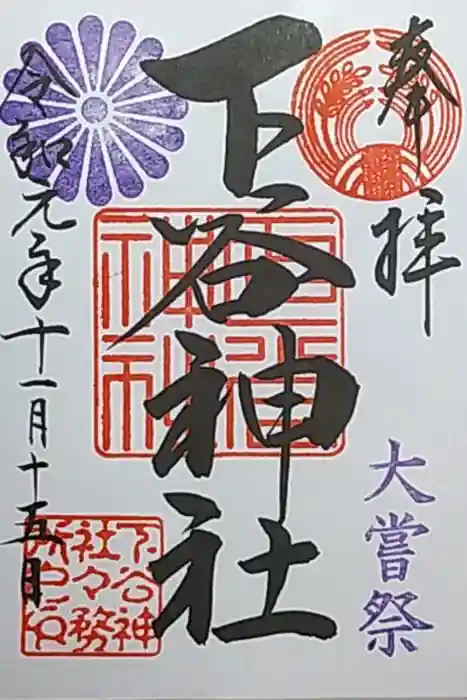 奉拝
大嘗祭
下谷神社
令和元年十一月十五日
下谷神
社々務
所之印